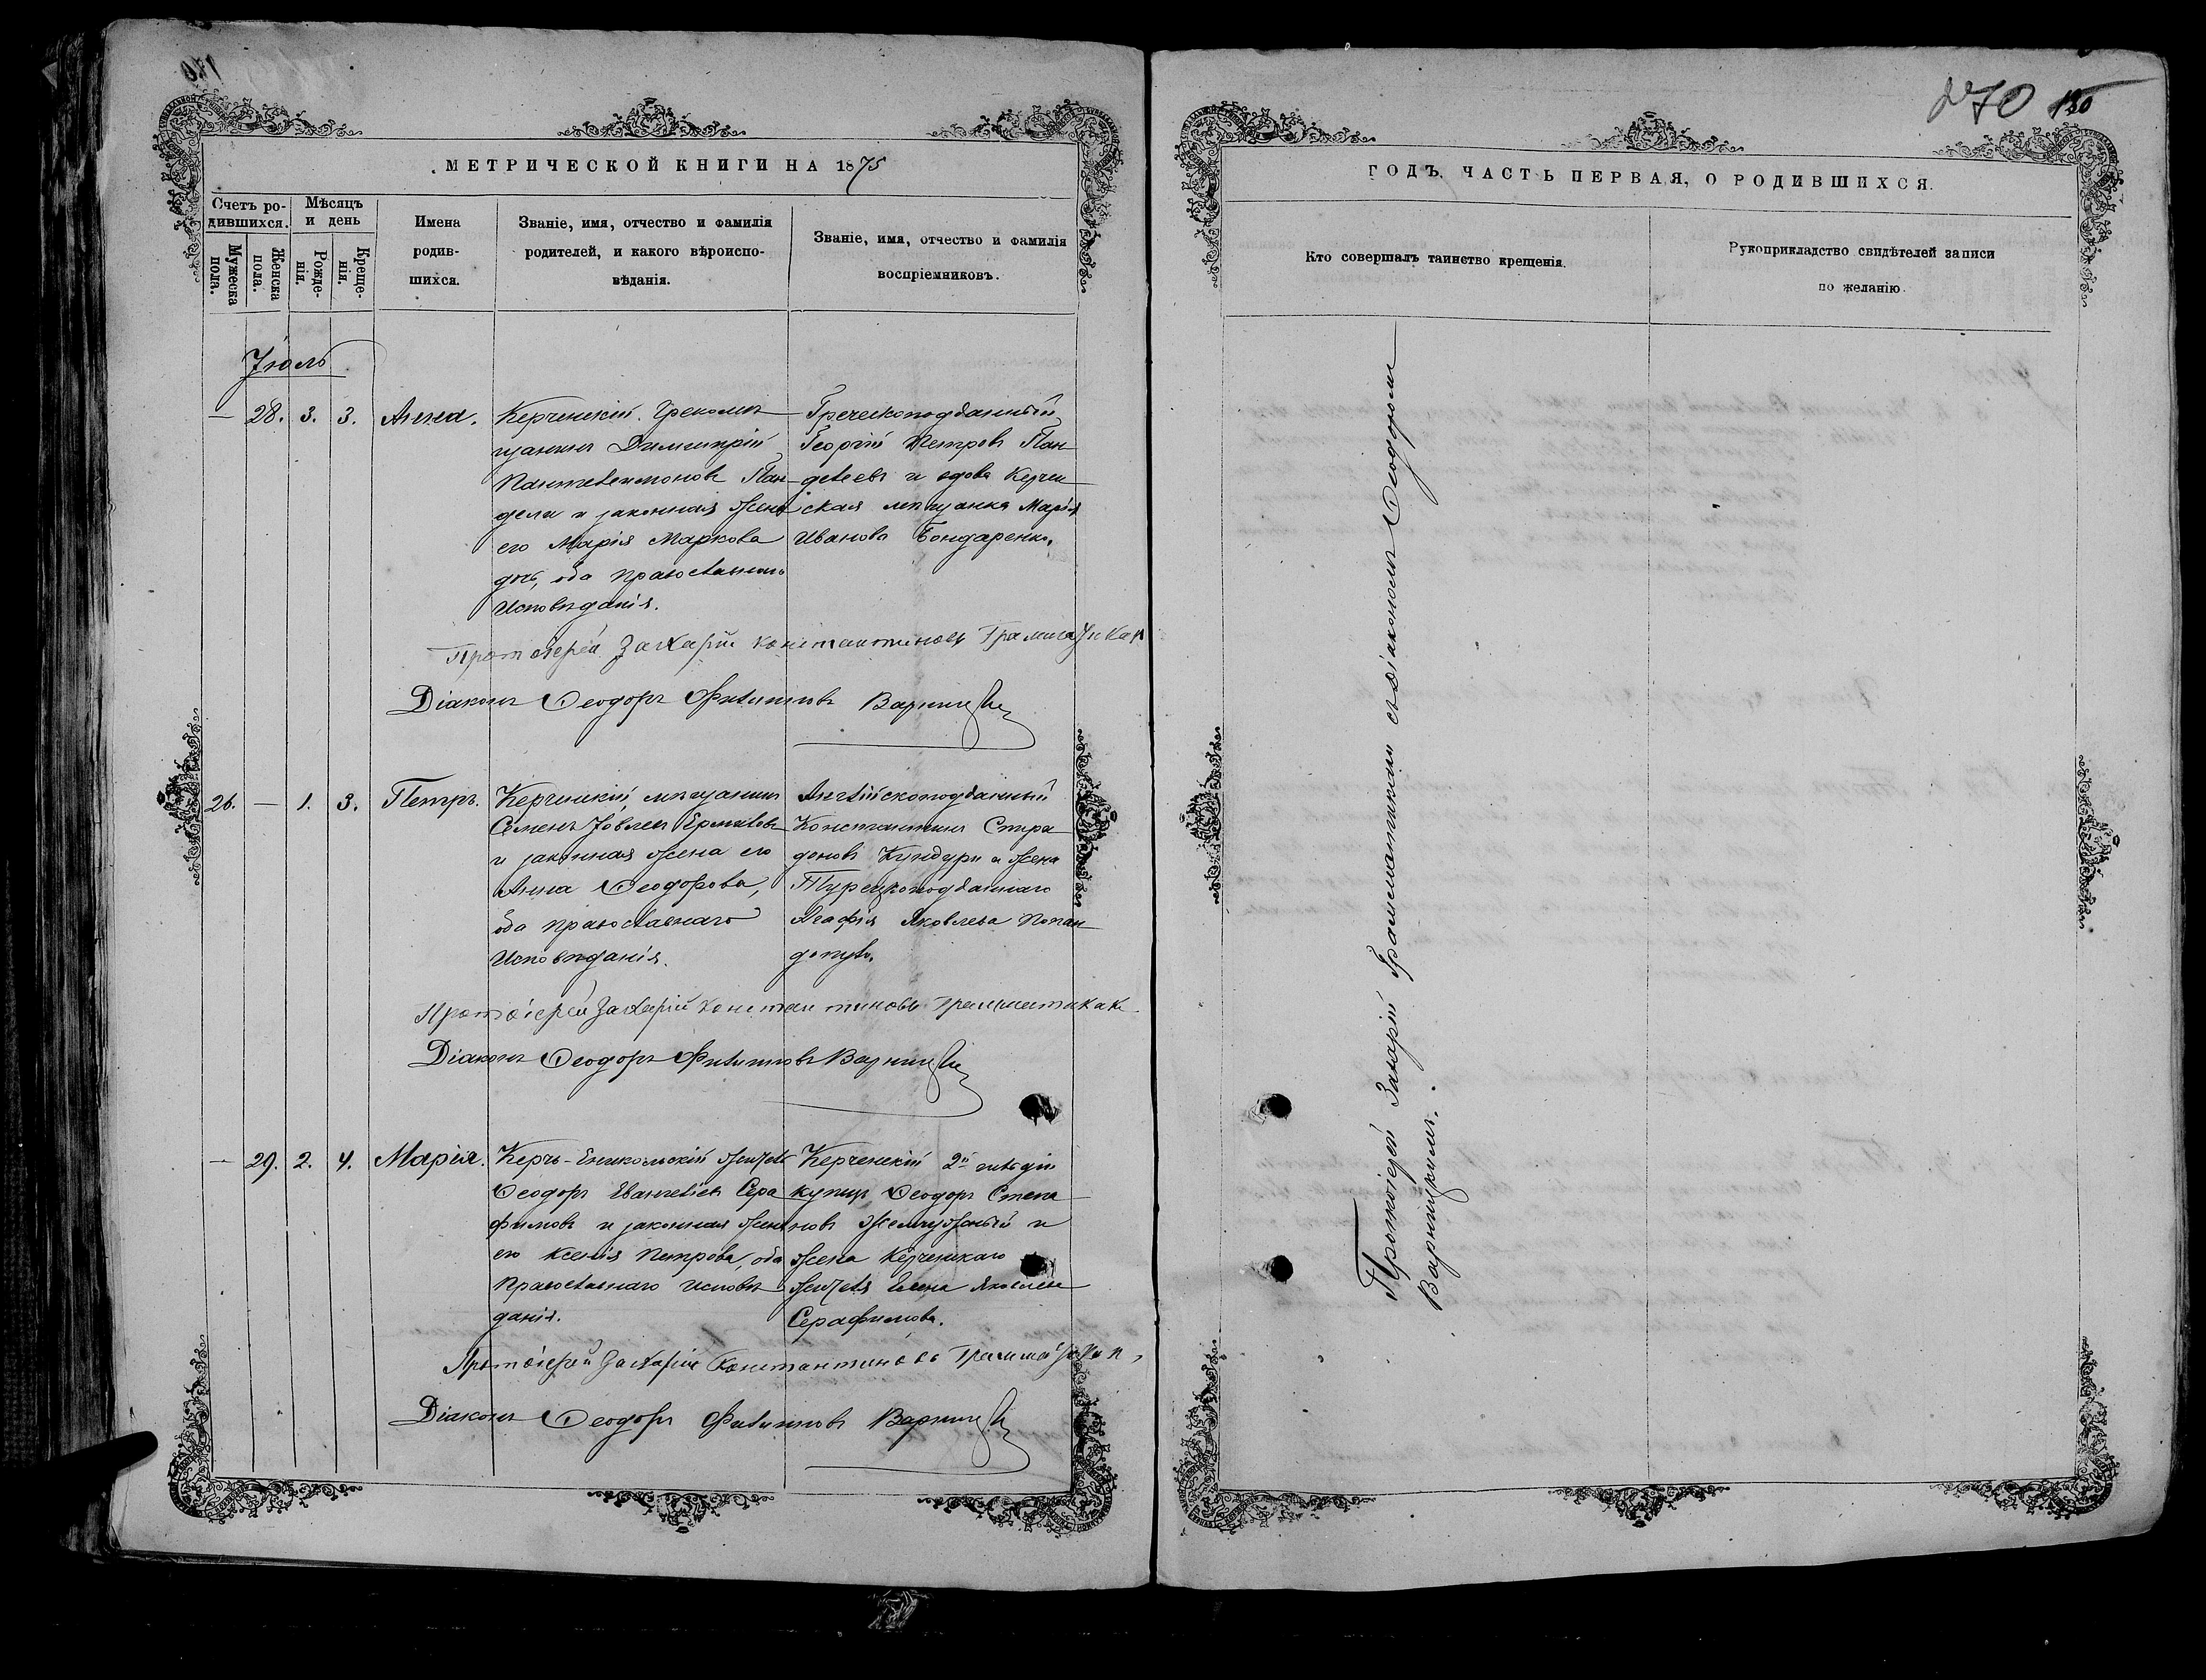 МЕТРИЧЕСКОЙ КНИГИ НА 1875
Счетъ ро-
дившихся.
Мѣсяцъ
и день
Мужеска
пола.
Женска
пола.
Рожде-
нія.
Креще-
нія.
Имена
родив-
шихся.
Званіе, имя, отчество и фамилія
родителей, и какого вѣроиспо-
вѣданія.
Званіе, имя, отчество и фамилія
воспріемниковъ.
Іюль
— 28. 3. 3. Анна.
Керченскій Грекомѣ
щанинъ Димитрій
Пантелеимоновъ Пан-
дели и законная жена
его Марія Маркова
дочь, оба православнаго
Исповѣданія.
Греческоподданный
Георгій Петровъ Пан
делеевъ и вдова Керчен
ская мѣщанка Марія
Иванова Бондаренко.
Протоіерей Захарій Константиновъ
Діаконъ Ѳеодоръ Филипповъ
26. — 1. 3. Петръ.
Керченскій мѣщанинъ
Семенъ Іовлевъ Ермиловъ
и законная жена его
Анна Ѳеодорова,
оба православнаго
Исповѣданія.
Англійскоподданный
Константинъ Спира
доновъ Кундури и жена
Турецкоподданнаго
Агафія Яковлева Попан
допуло.
Протоіерей Захарій Константиновъ Грамматикаки
Діаконъ Ѳеодоръ Филипповъ
— 29. 2. 4. Марія.
Керчь-Еникольскій житель
Ѳеодоръ Евангеліевъ Сера
фимовъ и законная жена
его Ксенія Петрова, оба
Православнаго исповѣ
данія.
Керченскій 2й гильдіи
купецъ Ѳеодоръ Степа
новъ Жемчужный и
жена Керченскаго
жителя Елена Яковлева
Серафимова.
Протоіерей Захарій Константиновъ
Діаконъ Ѳеодоръ Филипповъ
270 180
ГОДЪ. ЧАСТЬ ПЕРВАЯ, О РОДИВШИХСЯ.
Кто совершалъ таинство крещенія.
Рукоприкладство свидѣтелей записи
по желанію.
Протоіерей Захарій Грамматикаки съ діакономъ Ѳеодоромъ